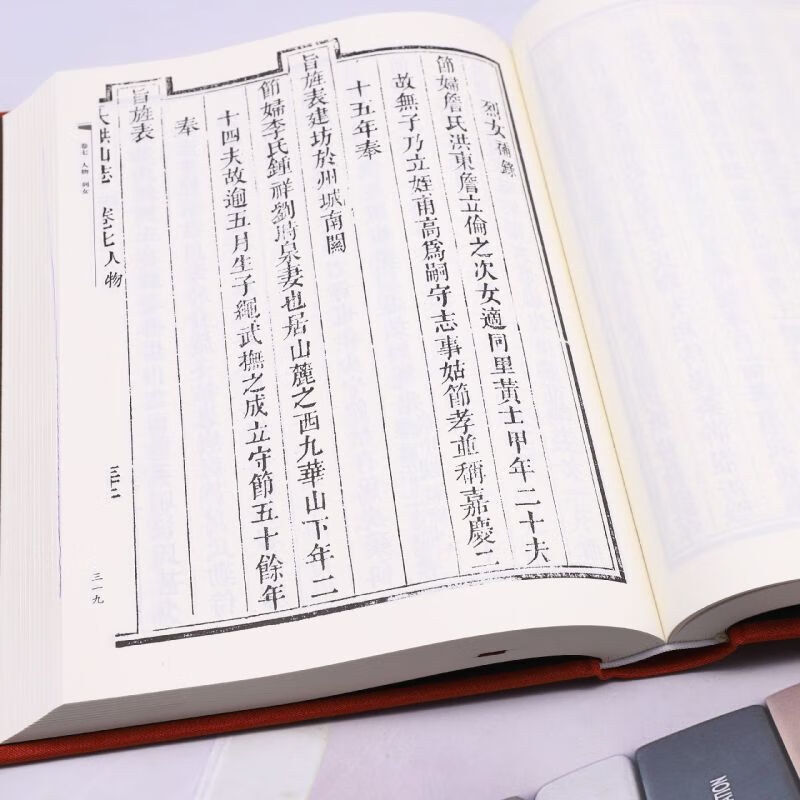 烈女補錄
節婦詹氏洪東詹立倫之次女適同里黃士甲年二十夫
故無子乃立姪甫高為嗣守志事姑節孝並稱嘉慶二
十五年奉
旨旌表建坊於州城南關
節婦李氏鍾祥劉時泉妻也居山麓之西九華山下年二
十四夫故逾五月生子繩武撫之成立守節五十餘年
奉
旨旌表
大洪山志 卷七人物 三十二
卷七 人物 列女
三一九
TION